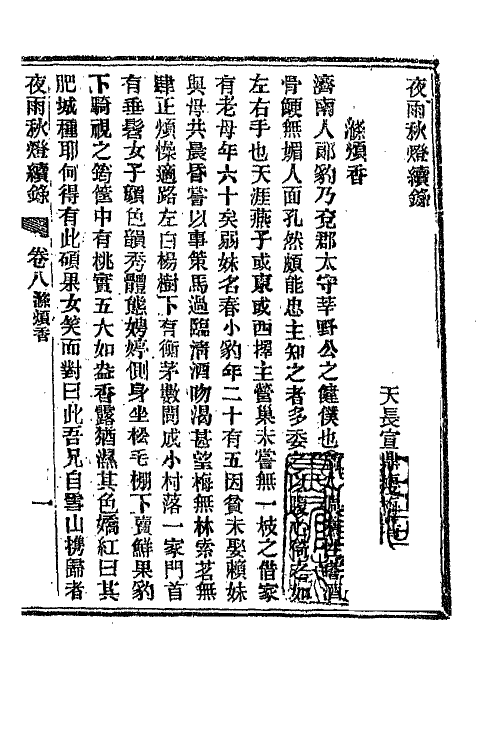 夜雨秋燈續錄
天長宣鼎瘦梅
滌煩香
濟南人鄒豹乃兗郡太守莘野公之僮僕也嗜酒
骨鯁無媚人面孔然頗能忠主知之者多委之以腹心倚之如
左右手也天涯燕子或東或西擇主營巢未嘗無一枝之借家
有老母年六十矣弱妹名春小豹年二十有五因貧未娶賴妹
與母共晨昏嘗以事策馬過臨淸酒吻渴甚望梅無林索茗無
肆正煩懆適路左白楊樹下有衡茅數間成小村落一家門首
有垂髫女子顏色韻秀體態娉婷側身坐松毛棚下賣鮮果豹
下騎視之筠筐中有桃實五六如盎香露猶濕其色嬌紅曰其
肥城種耶何得有此碩果女笑而對曰此吾兄自雪山携歸者
夜雨秋燈續錄
卷八滌煩香
一